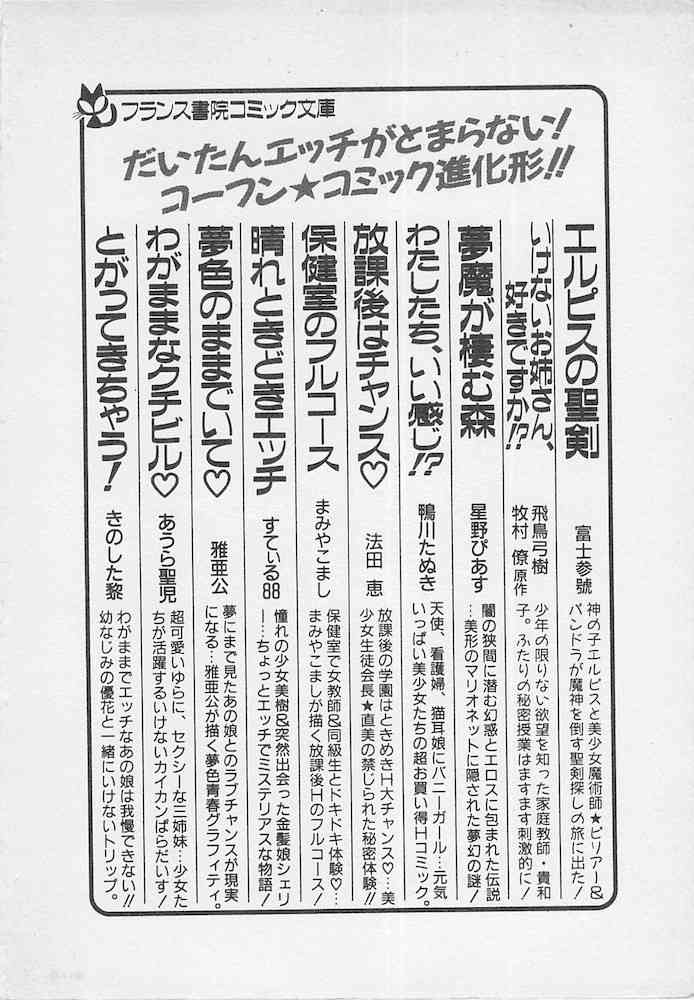 フランス書院コミック文庫
だいたんエッチがとまらない!
コーフン★コミック進化形!!
エルピスの聖剣
富士参號
神の子エルピスと美少女魔術師★ピリアー&
パンドラが魔神を倒す聖剣探しの旅に出た!
いけないお姉さん、
好きですか!?
飛鳥弓樹
牧村 僚原作
少年の限りない欲望を知った家庭教師・貴和
子。ふたりの秘密授業はますます刺激的に!
夢魔が棲む森
星野ぴあす
闇の狭間に潜む幻惑とエロスに包まれた伝説
…美形のマリオネットに隠された夢幻の謎!
わたしたち、いい感じ!?
鴨川たぬき
天使、看護婦、猫耳娘にバニーガール…元気
いっぱい美少女たちの超お買い得Hコミック。
放課後はチャンス♡
法田 恵
放課後の学園はときめきH大チャンス♡…美
少女生徒会長★直美の禁じられた秘密体験!!
保健室のフルコース
まみやこまし
保健室で女教師&同級生とドキドキ体験♡…
まみやこましが描く放課後Hのフルコース!
晴れときどきエッチ
すてぃる88
憧れの少女美樹&突然出会った金髪娘シェリ
ー…ちょっとエッチでミステリアスな物語!
夢色のままでいて♡
雅亜公
夢にまで見たあの娘とのラブチャンスが現実
になる…雅亜公が描く夢色青春グラフィティ。
わがままなクチビル♡
あうら聖児
超可愛いゆらに、セクシーな三姉妹…少女た
ちが活躍するいけないカイカンぱらだいす!
とがってきちゃう!
きのした黎
わがままでエッチなあの娘は我慢できない!!
幼なじみの優花と一緒にいけないトリップ。